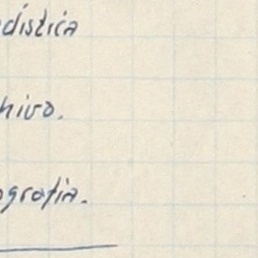 dística
hivo.
ografía.